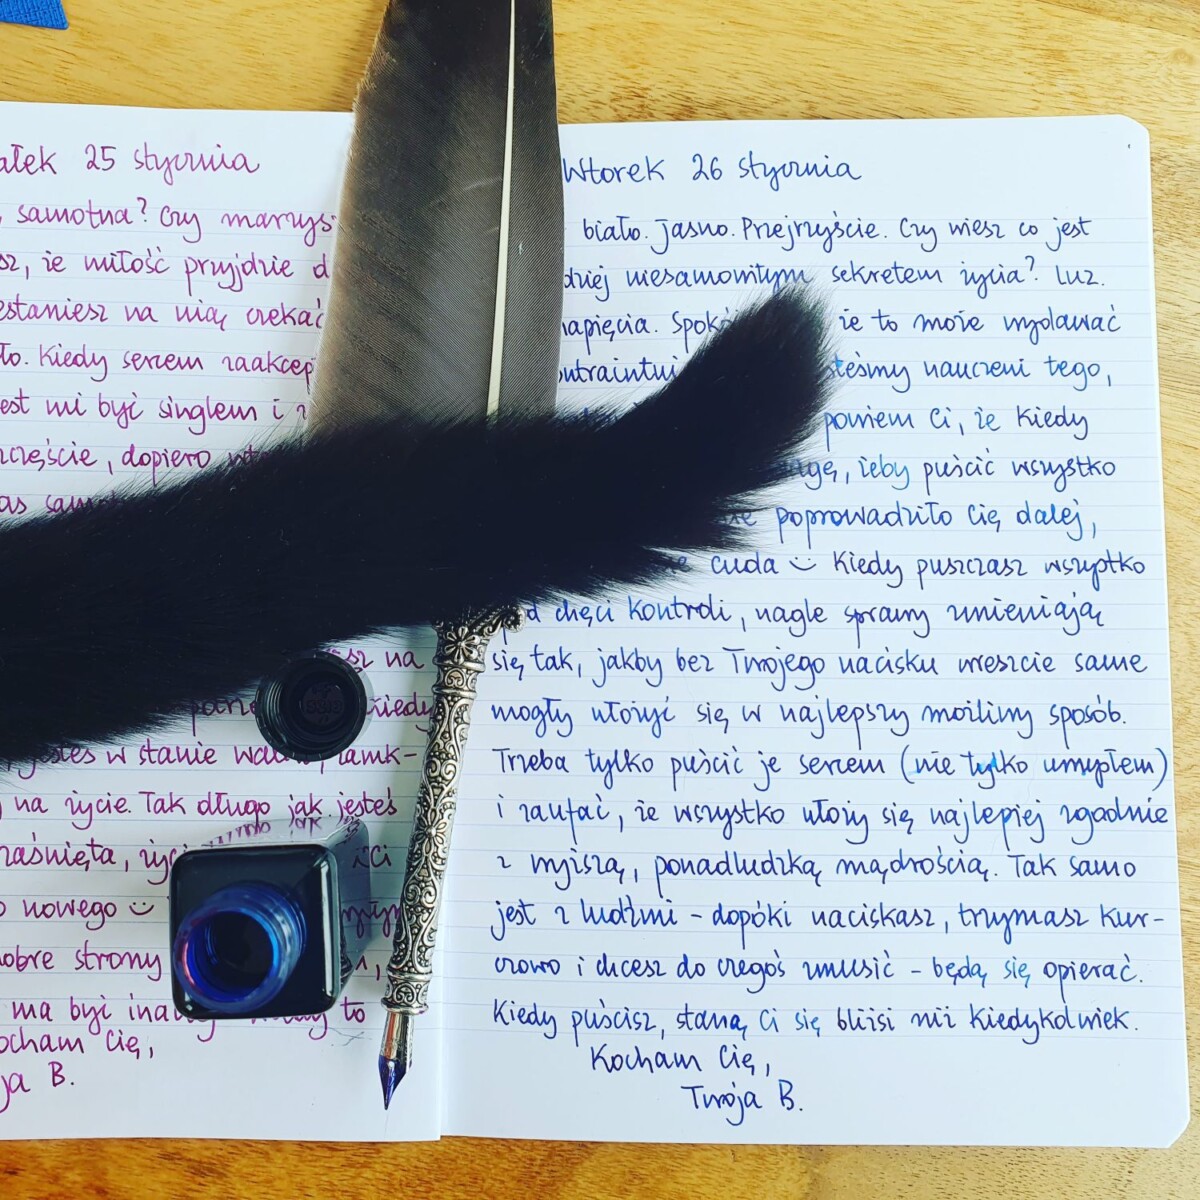 ałek 25 stycznia
samotna? Czy marzysz
sz, że miłość przyjdzie d
estaniesz na nią czekać
ło. Kiedy sercem zaakcep
est mi być singlem i z
zczęście, dopiero wte
as sam
sz na
pań kiedy
jesteś w stanie wal zamk-
na życie. Tak długo jak jesteś
zaśnięta, życi ci
o nowego :)
obre strony
ma być ina to
ocham Cię,
ja B.
Wtorek 26 stycznia
biało. Jasno. Przejrzyście. Czy wiesz co jest
dziej niesamowitym sekretem życia? Luz.
napięcia. Spok że to może wydawać
ontraintui steśmy nauczeni tego,
powiem Ci, że kiedy
agę, żeby puścić wszystko
poprowadziło Cię dalej,
cuda :) Kiedy puszczasz wszystko
od chęci kontroli, nagle sprawy zmieniają
się tak, jakby bez Twojego nacisku wreszcie same
mogły ułożyć się w najlepszy możliwy sposób.
Trzeba tylko puścić je sercem (nie tylko umysłem)
i zaufać, że wszystko ułoży się najlepiej zgodnie
z wyższą, ponadludzką mądrością. Tak samo
jest z ludźmi - dopóki naciskasz, trzymasz kur-
czowo i chcesz do czegoś zmusić - będą się opierać.
Kiedy puścisz, staną Ci się bliżsi niż kiedykolwiek.
Kocham Cię,
Twoja B.